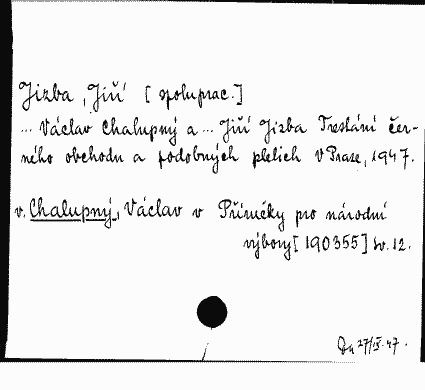 Jizba, Jiří [spoluprac.]
... Václav Chalupný a ... Jiří Jizba Trestání čer-
ného obchodu a podobných pletich V Praze, 1947.
v. Chalupný, Václav v Příručky pro národní
výbory [190355] sv. 12.
27/IX. 47.